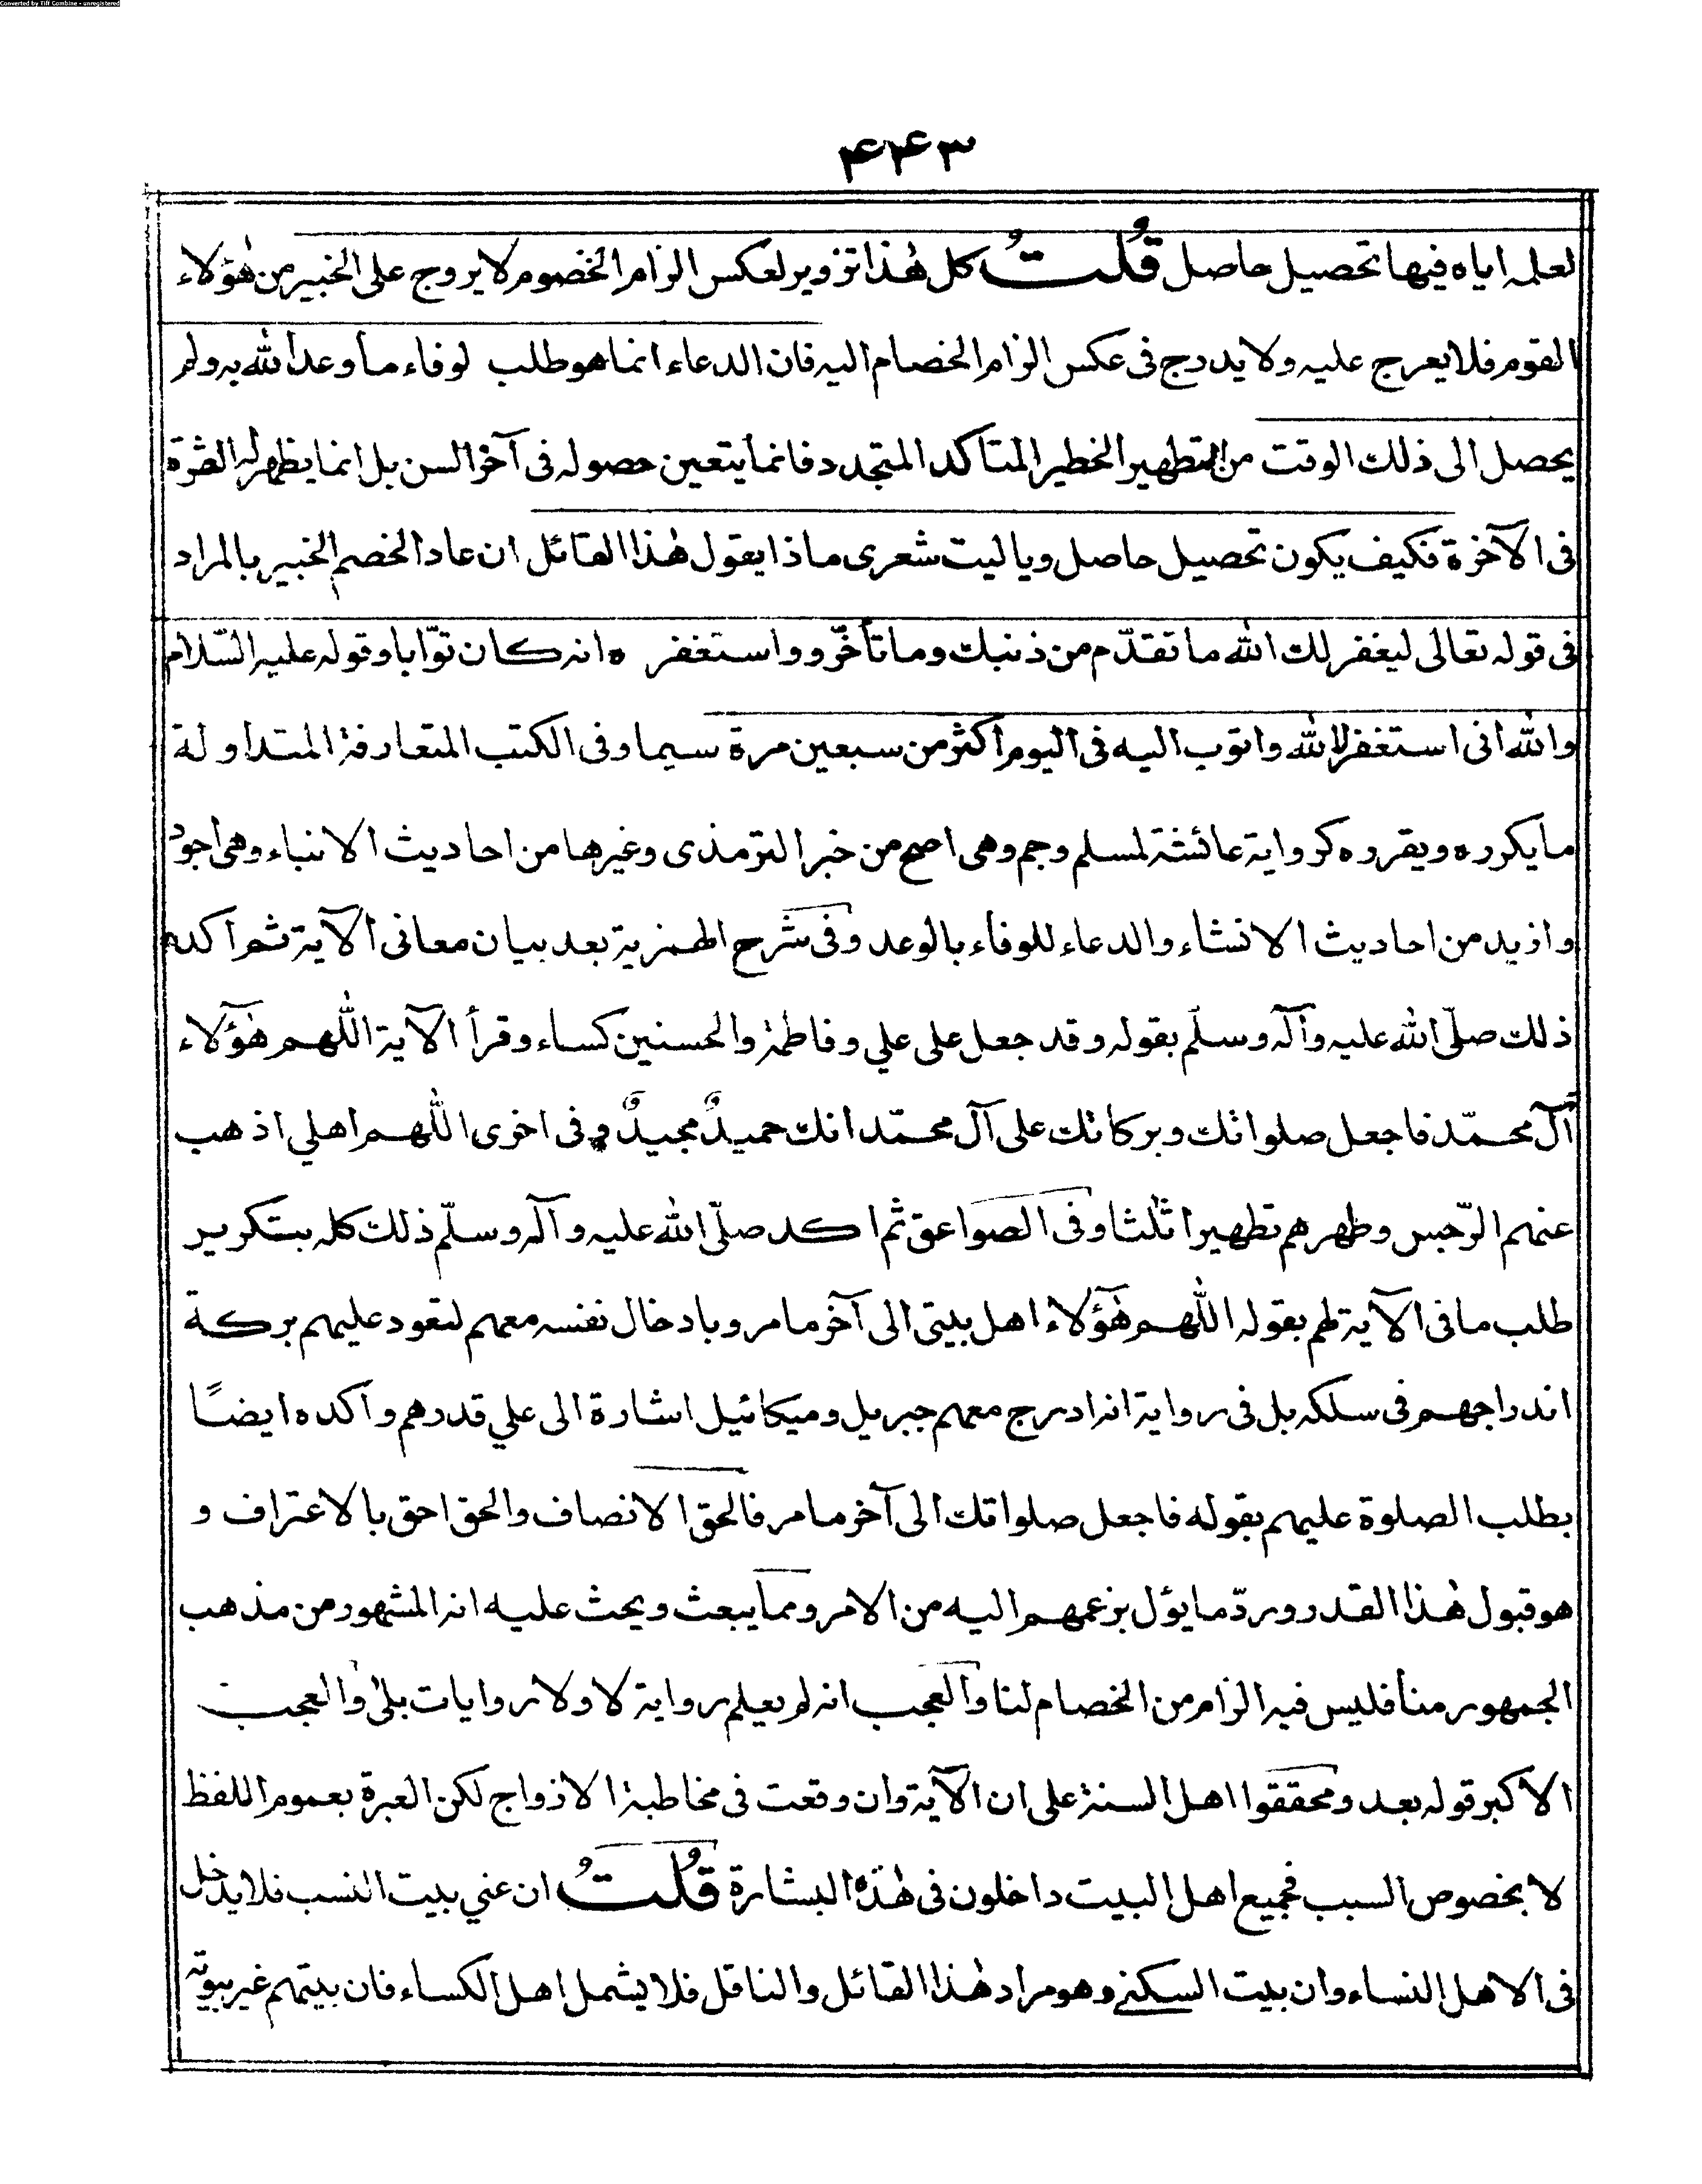 Converted by Tiff Combine - unregistered
۴۴۳
لعله اياه فيها تحصيل حاصل قُلتُ كل هٰذا تزوير لعكس الزام الخصوم لا يروج على الخبير من هٰؤلاء
القوم فلا يعرج عليه ولا يدرج فى عكس الزام الخصام اليه فان الدعاء انما هو طلب لوفاء ما وعد الله به ولم
يحصل الى ذلك الوقت من التطهير الخطير المتاكد المتجدد فانما يتعين حصوله فى آخر السن بل انما يظهر له الثمرة
فى الآخرة فكيف يكون تحصيل حاصل ويا ليت شعرى ماذا يقول هٰذا القائل ان عاد الخصم الخبير بالمراد
فى قوله تعالى ليغفر لك الله ما تقدّم من ذنبك وما تأخّر و واستغفر ه انه كان توّابا وقوله عليه السّلام
والله انى استغفر الله واتوب اليه فى اليوم اكثر من سبعين مرة سيما وفى الكتب المتعارفة المتداولة
ما يكرره ويقرره كرواية عائشة لمسلم وجم وهى اصح من خبر الترمذى وغيرها من احاديث الانباء وهى اجود
وازيد من احاديث الانشاء والدعاء للوفاء بالوعد وفى شرح الهمزية بعد بيان معانى الآية ثم اكده
ذلك صلّى الله عليه وآله وسلّم بقوله وقد جعل على علي وفاطمة والحسنين كساء وقرأ الآية اللّٰهم هٰؤلاء
آل محمّد فاجعل صلواتك وبركاتك على آل محمّد انك حميدٌ مجيدٌ وفى اخرى اللّٰهم اهلي اذهب
عنهم الرّجس وطهرهم تطهيرا ثلٰثا وفى الصواعق ثم اكد صلّى الله عليه وآله وسلّم ذلك كله بتكرير
طلب ما فى الآية لهم بقوله اللّٰهم هٰؤلاء اهل بيتى الى آخر ما مر وبادخال نفسه معهم لتعود عليهم بركة
اندراجهم فى سلكه بل فى رواية انه ادرج معهم جبريل وميكائيل اشارة الى علي قدرهم واكده ايضًا
بطلب الصلوة عليهم بقوله فاجعل صلواتك الى آخر ما مر فالحق الانصاف والحق احق بالاعتراف و
هو قبول هٰذا القدر وردّ ما يؤل بزعمهم اليه من الامر ومما يبعث ويحث عليه انه المشهور من مذهب
الجمهور منا فليس فيه الزام من الخصام لنا والعجب انه لم يعلم رواية لا ولا روايات بلىٰ والعجب
الاكبر قوله بعد ومحققوا اهل السنة على ان الآية وان وقعت فى مخاطبة الازواج لكن العبرة بعموم اللفظ
لا بخصوص السبب فجميع اهل البيت داخلون فى هٰذه البشارة قُلتُ ان عني بيت النسب فلا يدخل
فى الاهل النساء وان بيت السكنى وهو مراد هٰذا القائل والناقل فلا يشمل اهل الكساء فان بيتهم غير بيوته